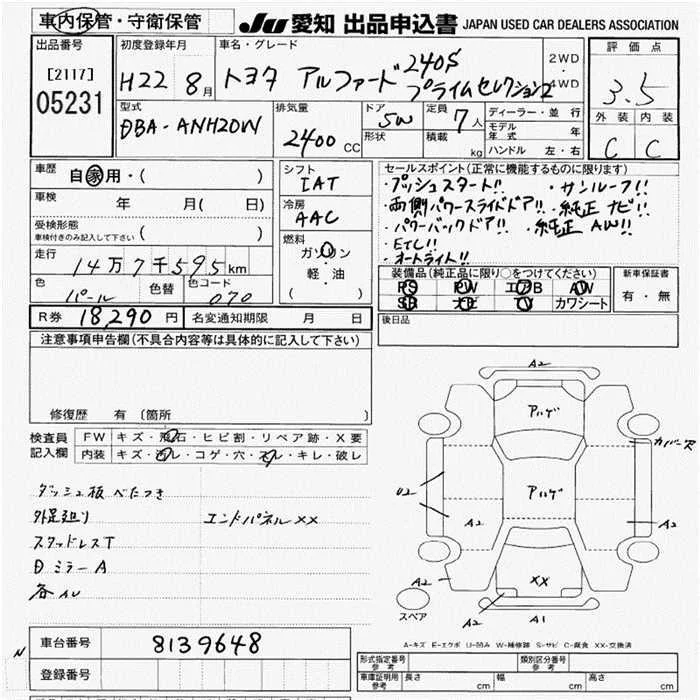 車内保管・守衛保管
JU 愛知 出品申込書 JAPAN USED CAR DEALERS ASSOCIATION
出品番号
[2117]
05231
初度登録年月
H22 8月
車名・グレード
トヨタ アルファード 240S
プライムセレクション2
2WD
・
4WD
評価点
3.5
外装 内装
C C
型式
DBA-ANH20W
排気量
2400 CC
ドア
5W
形状
定員
7人
積載
kg
ディーラー・並行
モデル年式 年
ハンドル 左・右
車歴
自家用・( )
車検
年 月( 日)
受検形態
車検付きのみ記入して下さい ( )
走行
14万7千595km
色
パール
色替
色コード
070
シフト
IAT
冷房
AAC
燃料
ガソリン
・
軽・油
( )
セールスポイント(正常に機能するものに限ります)
・プッシュスタート!! ・サンルーフ!!
・両側パワースライドドア!! ・純正ナビ!!
・パワーバックドア!! ・純正AW!!
・ETC!!
・オートライト!!
装備品(純正品に限り○をつけてください)
PS PW エアB AW
SR ナビ TV カワシート
新車保証書
有・無
R券 18,290円 名変通知期限 月 日
後日品
注意事項申告欄(不具合内容等は具体的に記入して下さい)
修復歴 有 (箇所 )
検査員
記入欄
FW キズ・飛石・ヒビ割・リペア跡・X要
内装 キズ・汚レ・コゲ・穴・スレ・キレ・破レ
ダッシュ板べたつき
外足廻り エンドパネルXX
スタッドレスT
Dミラー A
A2
アハゲ
カバー欠
U2
アハゲ
A2
A2
A2
XX
A2
A1
スペア
A-キズ E-エクボ U-凹み W-補修跡 S-サビ C-腐食 XX-交換済
N
車台番号 8139648
登録番号
形式指定番号
参考
類別区分番号
参考
車庫証明用
参考
長さ cm 幅 cm 高さ cm